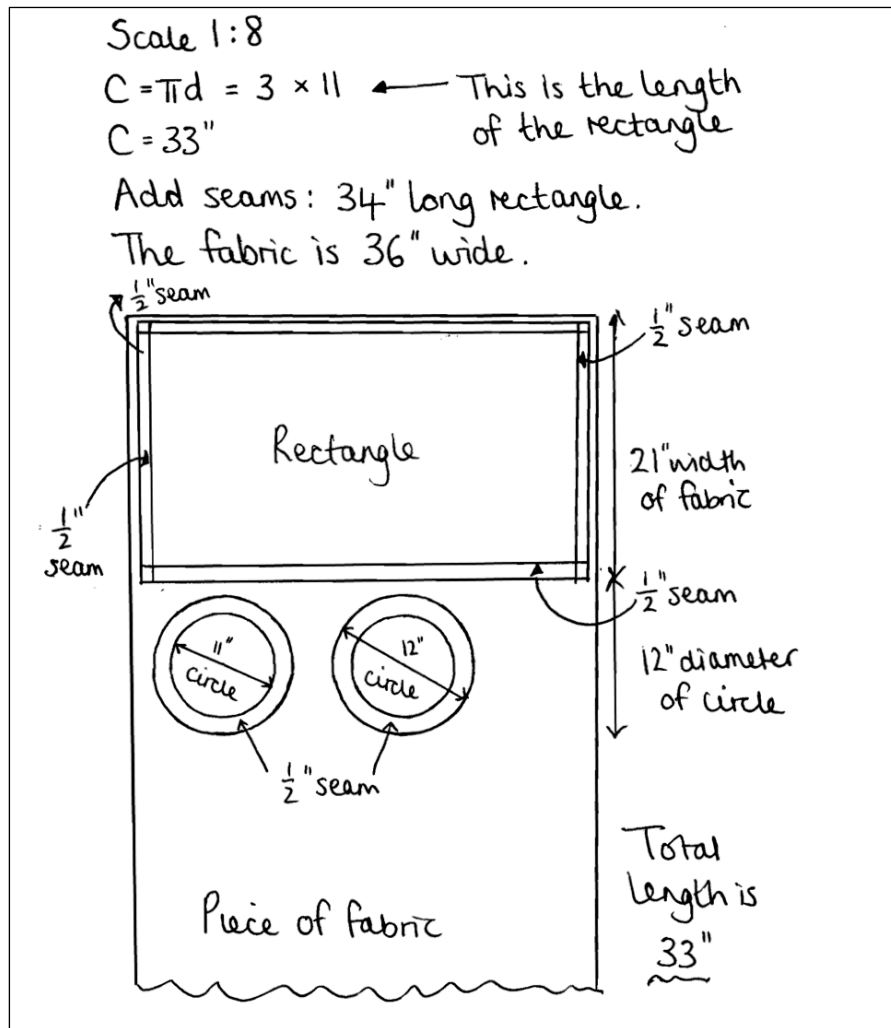 Scale 1:8
C = πd = 3 × 11
This is the length
of the rectangle
C = 33"
Add seams: 34" long rectangle.
The fabric is 36" wide.
1/2" seam
1/2" seam
Rectangle
21" width
of fabric
1/2"
seam
1/2" seam
11"
circle
12"
circle
12" diameter
of circle
1/2" seam
Total
length is
33"
Piece of fabric